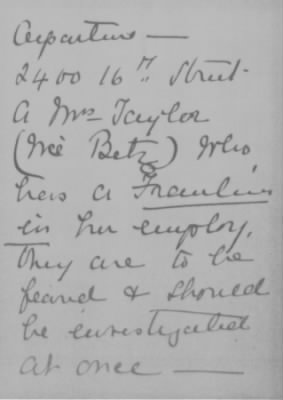 Departure —
2400 16th Street.
A Mrs Taylor
(Neé Betz) who
has a Fraulein
in her employ.
They are to be
feared & should
be investigated
at once —